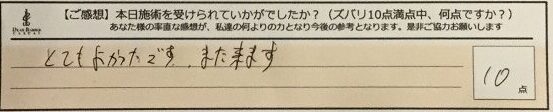 【ご感想】本日施術を受けられていかがでしたか？（ズバリ10点満点中、何点ですか？）
あなた様の率直な感想が、私達の何よりの力となり今後の参考となります。是非ご協力お願いします
とてもよかったです、また来ます
10点